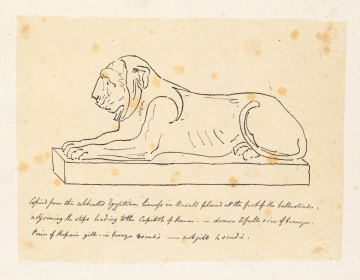 Copied from the celebrated Egyptian Lioness in Basalt placed at the foot of the ballustrade,
adjoining the steps leading to the Capitol of Rome. — drawn to full size of bronze.
Price of Repair gilt - in bronze — not gilt